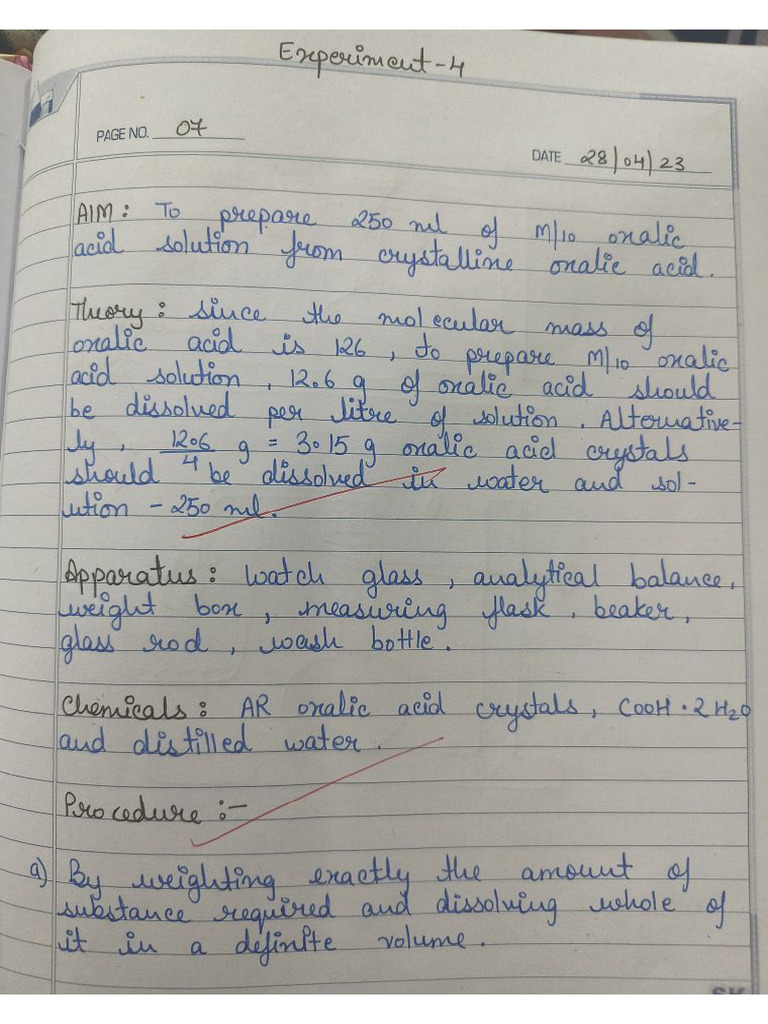 Experiment-4
PAGE NO. 07
DATE 28/04/23
AIM: To prepare 250 ml of M/10 oxalic
acid solution from crystalline oxalic acid.
Theory: Since the molecular mass of
oxalic acid is 126, to prepare M/10 oxalic
acid solution, 12.6 g of oxalic acid should
be dissolved per litre of solution. Alternative-
ly, 12.6/4 g = 3.15 g oxalic acid crystals
should be dissolved in water and sol-
ution - 250 ml.
Apparatus: Watch glass, analytical balance,
weight box, measuring flask, beaker,
glass rod, wash bottle.
Chemicals: AR oxalic acid crystals, COOH·2H₂O
and distilled water.
Procedure:-
a) By weighting exactly the amount of
substance required and dissolving whole of
it in a definite volume.